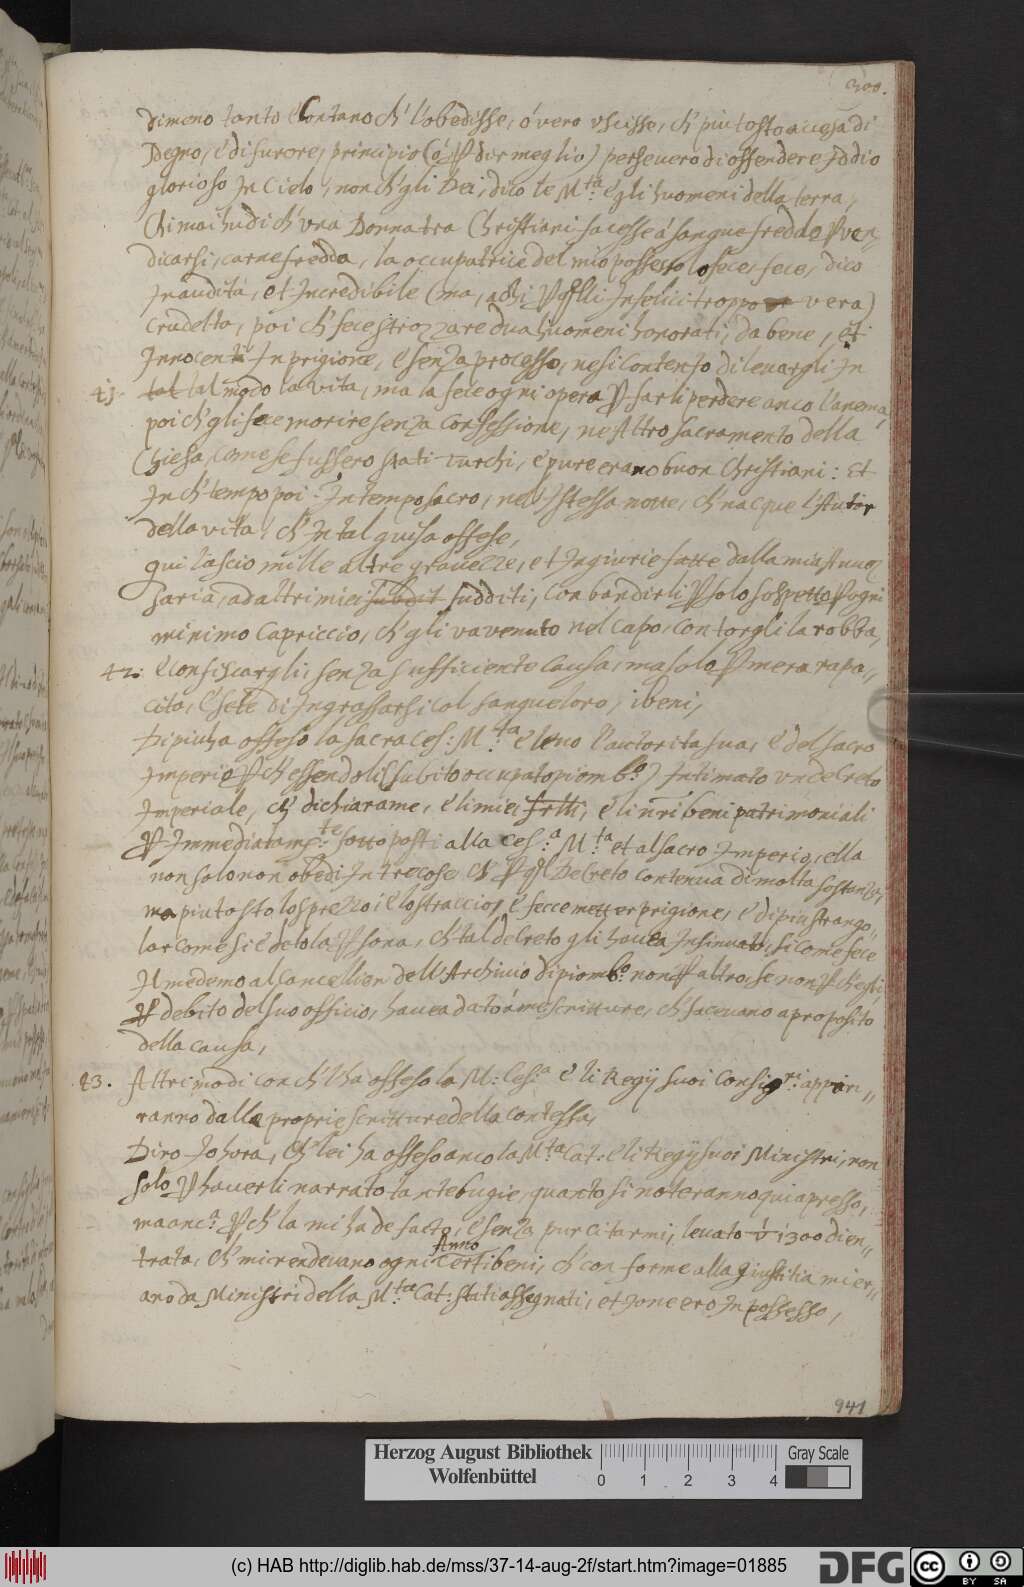 300.
dimeno tanto è lontano ch' l'obedisse, ó vero uscisse, ch' piu tosto accesa di
sdegno, è di furore, principiò (ó p dir meglio) perseverò di offendere Iddio
glorioso In Cielo, non ch' gli Dei, dico le M.tà è gli huomeni della terra,
Chi mai hudi ch' una Donna tra Christiani facesse á sangue freddo p ven=
dicarsi, carne fredda, la occupatrice del mio possesso lo fece, fece, dico
Inaudita, et Incredibile (ma, ahi p qlli Infelici troppo vera)
crudelta, poi ch' fece strozzare dua huomeni honorati, da bene, et
Innocenti In prigione, è senza processo, ne si contentò di levargli In
41. tal tal modo la vita, ma la fece ogni opera p farli perdere anco l'anema,
poi ch' gli fece morire senza confessione, ne Altro sacramento della
Chiesa, come se fussero stati Turchi, è pure erano buon Christiani: Et
In ch' tempo poi: In tempo sacro, nell'Istessa notte, ch' nacque l'Autor
della vita, ch' In tal guisa offese,
qui lascio mille altre gravezze, et Ingiurie fatte dalla mia Avver
saria, ad altri miei subdit sudditi, con bandirli p solo sospetto p ogni
minimo Capriccio, ch' gli va venuto nel capo, con torgli la robba,
42: è confiscargli, senza sufficiente causa, ma solo p mera rapa=
cita, è sete di Ingrassarsi col sangue loro, i beni,
Di piu ha offeso la sacra Ces: M.tà è leuo l'autorita sua, è del sacro
Imperio p ch' essendoli (subito occupato piomb.o) Intimato un decreto
Imperiale, ch' dichiarame, è li miei frlli, è li nri beni patrimoniali
p Immediatam.te sotto posti alla Ces.a M.tà et al sacro Imperio, ella
non solo non obedi In tre cose ch' p ql Decreto contenua di molta sostanza,
ma piu tosto lo sprezzò è lo stracciò, è fecce metter prigione, è di piu strango=
lar come si è detto la psona, ch' tal decreto gli havea Insinuato, si come fece
Il medemo al Cancellier dell'Archivio di piomb.o non p altro, se non p ch' egli,
p debito del suo officio, havea dato á me scritture, ch' facevano a proposito
della causa,
43. Altri modi con ch' l'ha offeso la M: Ces.a è li Regij suoi Consig.ri appari=
ranno dalla proprie scritture della contessa,
Diro Io hora, Ch' lei ha offeso anco la M.tà Cat: è li Regij suoi Ministri, non
solo p haverli narrato tante bugie, quanto si noteranno qui apresso,
ma anc.a p ch' la mi ha de facto, è senza pur citarmi, levato v 1300 di en=
trata, ch' mi rendevano ogni Anno certi beni, ch' conforme alla giustitia mi er=
ano da Ministri della M.tà Cat: stati assegnati, et Io ne ero In possesso,
941
Herzog August Bibliothek
Wolfenbüttel
0 1 2 3 4
Gray Scale
(c) HAB http://diglib.hab.de/mss/37-14-aug-2f/start.htm?image=01885
DFG
cc BY SA